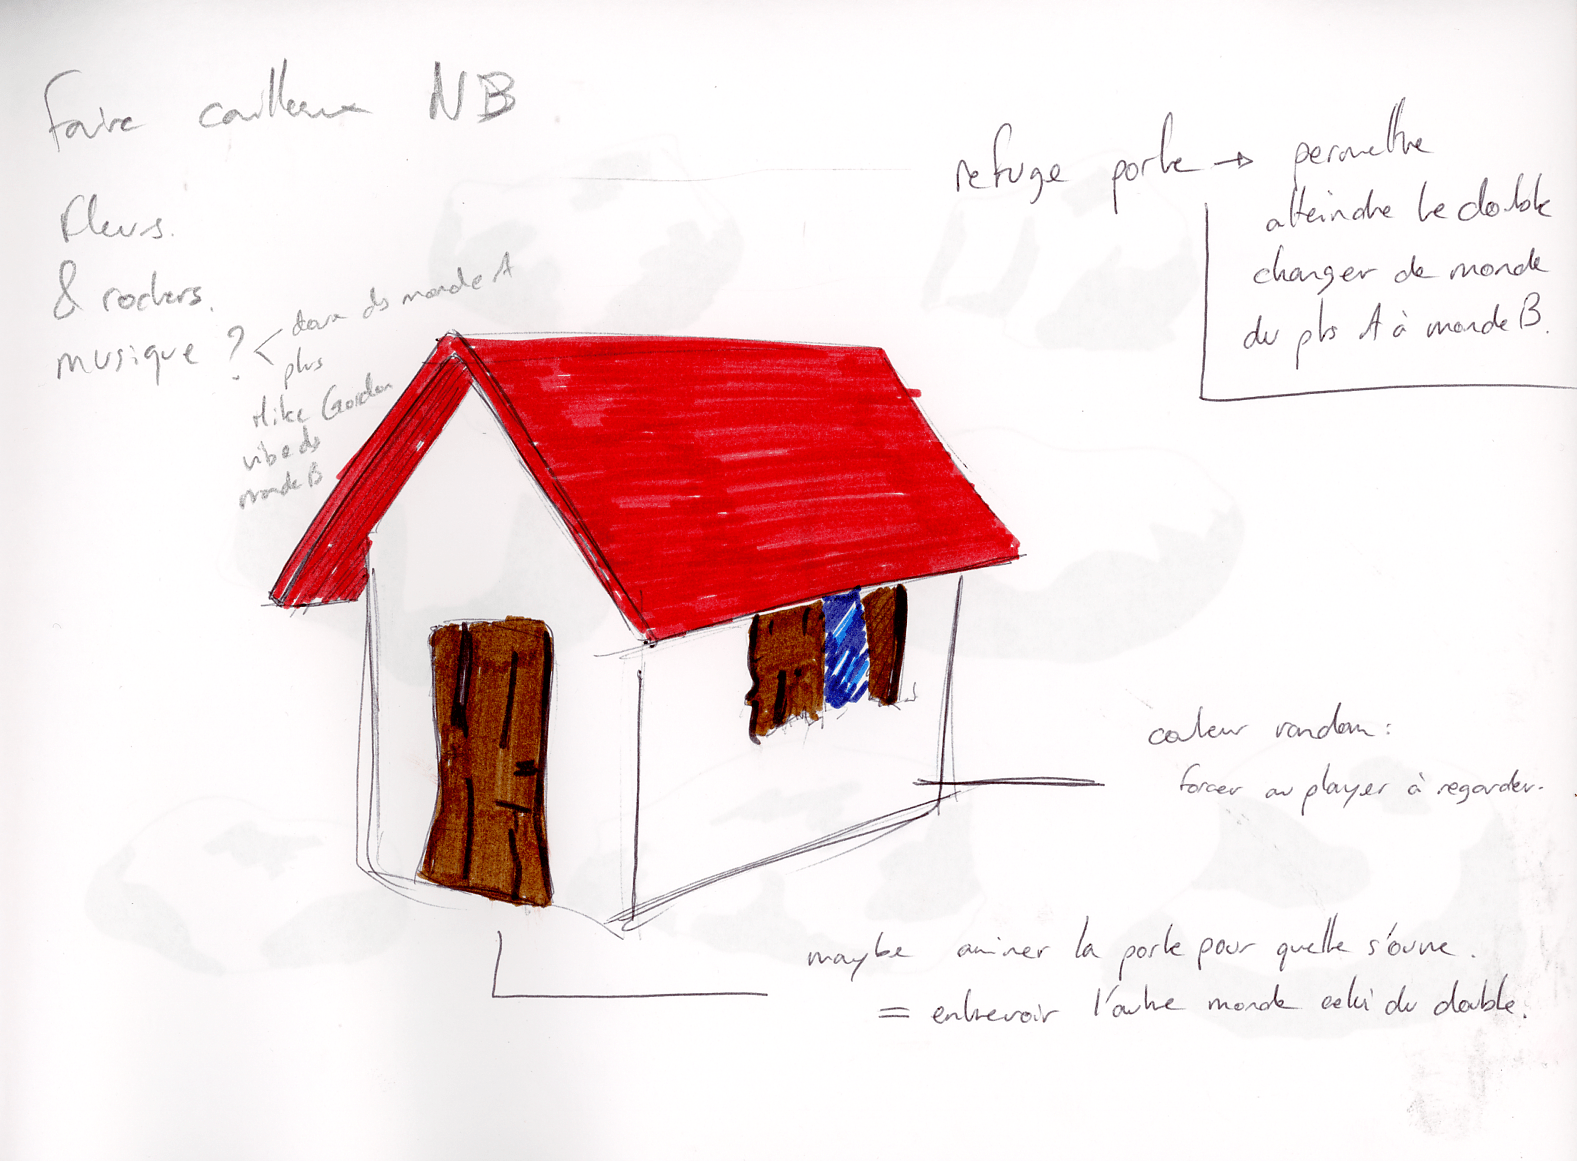 faire cailleux NB
fleurs.
& rochers.
musique ?
ds monde A
plus
Mike Gordon
vibe ds
monde B
refuge porte → permettre
atteindre le double
changer de monde
du pts A à monde B.
couleur random :
forcer au player à regarder.
maybe animer la porte pour quelle s'ouvre.
= entrevoir l'autre monde celui du double.